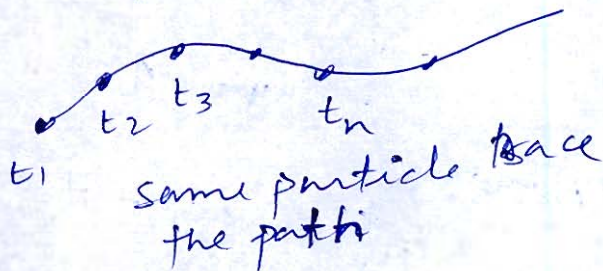 t1 t2 t3 tn
same particle trace
the path